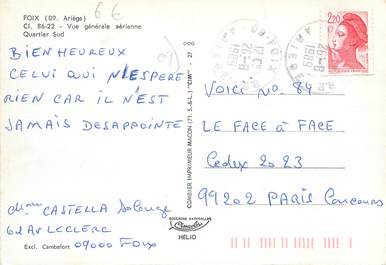 FOIX (09. Ariège)
Cl. 86-22 - Vue générale aérienne
Quartier Sud
6€
BIEN HEUREUX
CELUI QUI N'ESPERE
RIEN CAR IL N'EST
JAMAIS DESAPPOINTE
Mme CASTELLA Solange
62 Av LECLERC
Excl. Cambefort 09000 FOIX
COMBIER IMPRIMEUR MACON (71. S.-&-L.) "CIM" - 27
Combier
HELIO
09-FOIX
1989
2,20
VOICI no. 84
LE FACE à FACE
Cedex 2023
99202 PARIS Concours